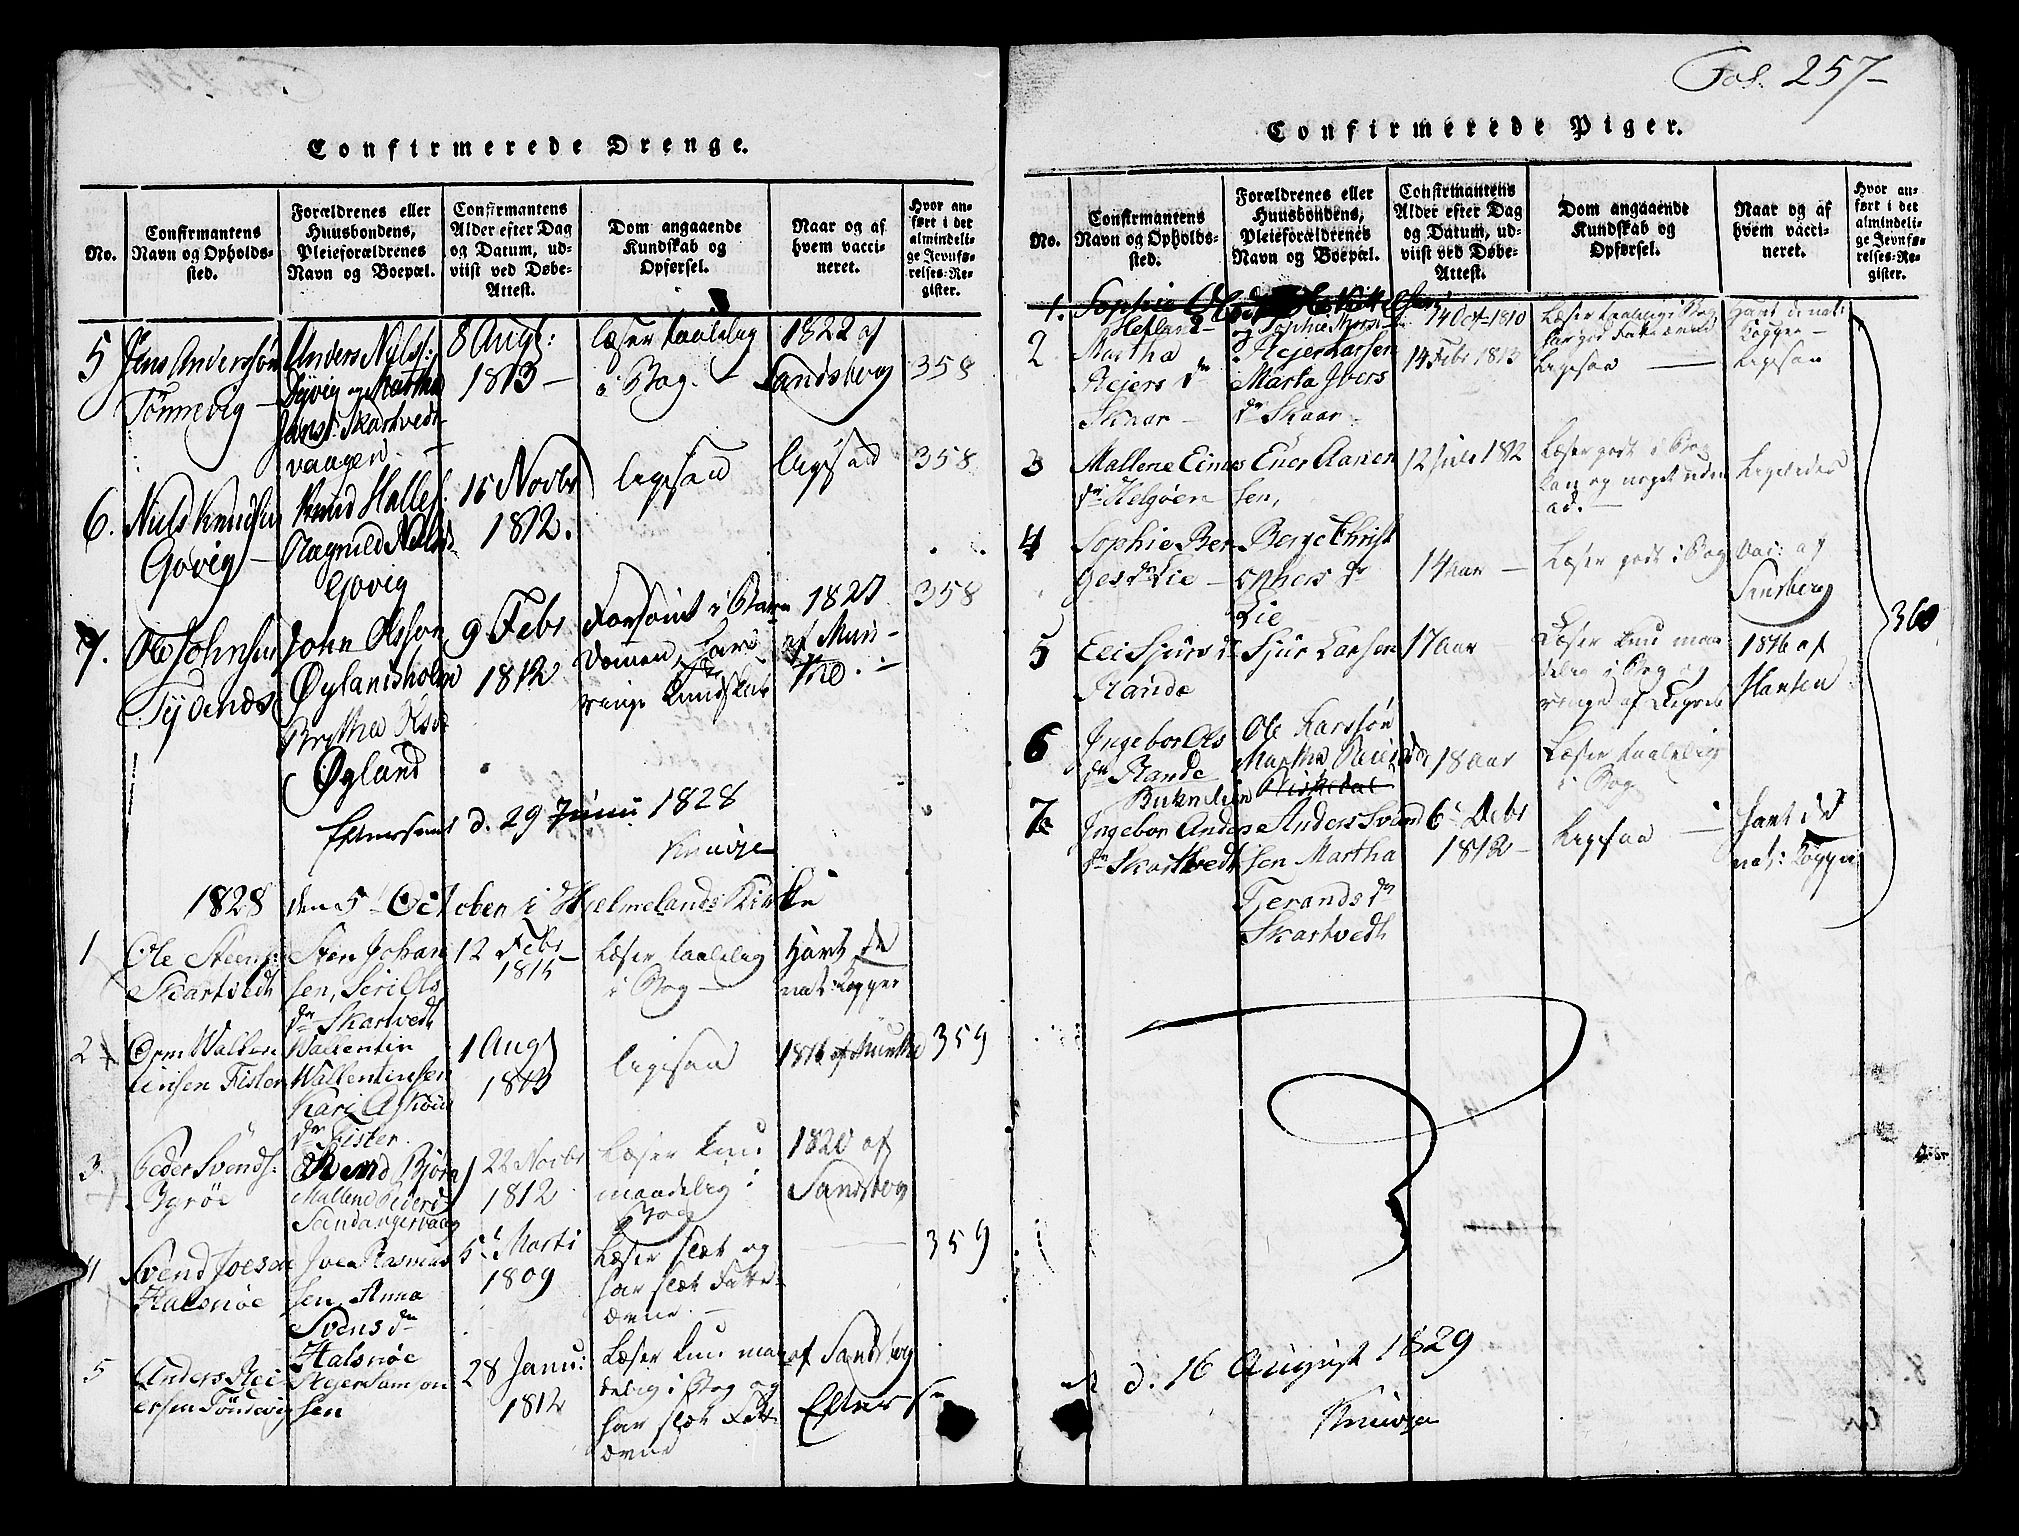 Fol. 257-
Confirmerede Drenge.
No.
Confirmantens
Navn og Opholds-
sted.
Forældrenes eller
Huusbondens,
Pleieforældrenes
Navn og Boepæl.
Confirmantens
Alder efter Dag
og Datum, ud-
viist ved Døbe-
Attest.
Dom angaaende
Kundskab og
Opførsel.
Naar og af
hvem vacci-
neret.
Hvor an-
ført i det
almindeli-
ge Jevnfø-
relses-Re-
gister.
5
Jens Anderssøn
Tønnevig -
Anders Nilss:
Jans. Skartvedt
vaagen. -
8 Augt:
1813 -
læser taalelig
i Bog. -
1822 af
Sandsberg
358
6.
Niels Knudsen
Govig -
Knud Halles.
Ragnild Nels
Govig
15 Novbr
1812.
ligesaa
ligesaa
358
7.
Ole Johnsen
Tydenes
John Olsson
Øylandsholm
Brytha Olsd
Øyland
9 Febr
1812
Forsømt i Barn
dommen, har
ringe Kundskab
1827
af Mun-
the. -
358
Eftersees d. 29 Junii 1828
1828 den 5te October i Hjelmelands Kirke
1
Ole Steens:
Skartvedt
Sten Johan
sen, Siri Ols
dr Skartvedt
12 Febr
1815
Læser taalelig
i Bog -
Havt de
nat: Kopper
2
Orm Wallen
tinsen Fister
Wallentin
Wallentinsen
Kari
dr Fister.
1 Aug
1813
ligesaa
1816 af Munthe
359
3.
Peder Svends:
Byrøe
Mallene
22 Novbr
1812
Læser kun
maadelig i
Bog
1820 af
Sandsberg
4
Svend Joesen
Halsnøe
Joen Rasmus
sen Anna
Svens dr
Halsnøe
5te Marti
1809
Læser slet og
har slet Fatte-
ævne. -
359
5
Anders Rei
ersen Tøndevig
Rejer Samson
sen
28 Janu:
1812
Læser kun maa
delig i Bog og
har slet Fatt
ævne
af Sandsberg
Efters
Confirmerede Piger.
No.
Confirmantens
Navn og Opholds-
sted.
Forældrenes eller
Huusbondens,
Pleieforældrenes
Navn og Boepæl.
Confirmantens
Alder efter Dag
og Datum, ud-
viist ved Døbe-
Attest.
Dom angaaende
Kundskab og
Opførsel.
Naar og af
hvem vacci-
neret.
Hvor an-
ført i det
almindeli-
ge Jevnfø-
relses-Re-
gister.
1.
Sophie
Hetland
14 Oct 1810
Læser taalelig i Bog
Havt de nat:
Kopper -
2
Martha
Reiers dr
Skaar -
Reier Larsen
Marta Ivers
dr Skaar -
14 Febr 1813
Ligesaa -
Ligesaa
3
Mallene Einers
dr Helgøen
Ener Aanen
sen,
12 Juli 1812
Læser godt i Bog
kan og noget uden
ad. -
Ligeledes
4
Sophie Ber
ges dr Lie -
Berge Christ
ophers dr
Lie
14 aar -
Læser godt i Bog
Vac: af
Sandsberg
5
Eli Sjurs dr
Rande
Sjur Larsen
17 aar
Læser kun maa
delig i Bog og
ringe af Begreb
1816 af
Hansen
6
Ingebor Ols
dr Rande
Ole Larssøn
Martha
18 aar
Læser taalelig
i Bog
7
Ingebor Anders
dr Skartvedt
Anders Svend
sen Martha
Tjerands dr
Skartvedt
6te Debr
1812 -
Ligesaa -
havt de
nat: Kopper
360
d. 16 August 1829